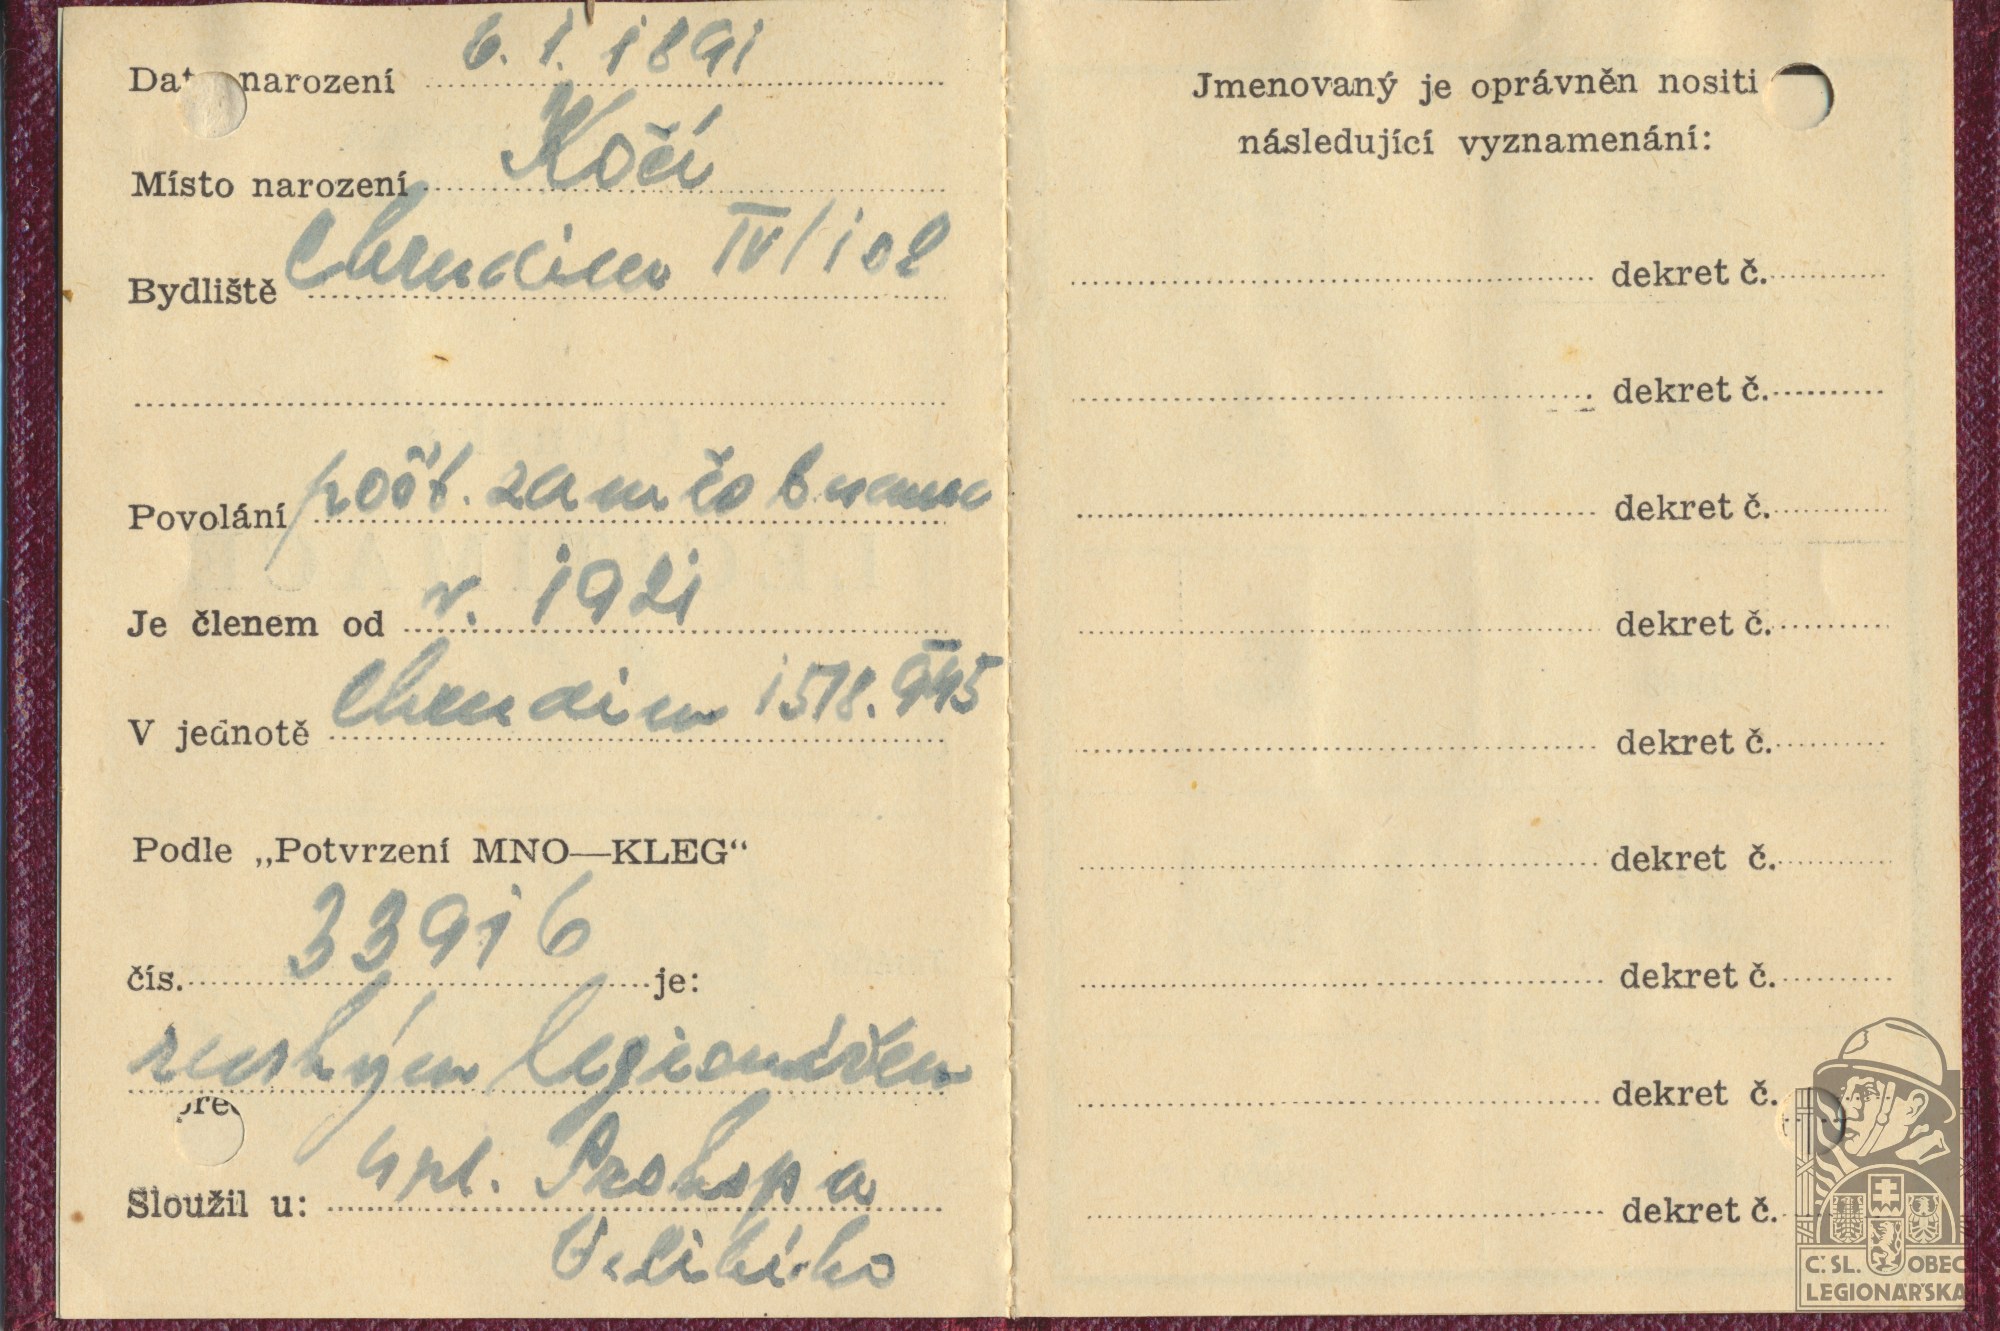 6. 1. 1891
Dat narození
Kočí
Místo narození
Chrudim IV/102
Bydliště
pošt. zaměstnanec
Povolání
Je členem od r. 1921
V jednotě Chrudim 1518.945
Podle „Potvrzení MNO—KLEG“
čís. 33916 je:
ruským legionářem
Sloužil u: 4 pl. Prokopa
Velikého
Jmenovaný je oprávněn nositi
následující vyznamenání:
dekret č.
dekret č.
dekret č.
dekret č.
dekret č.
dekret č.
dekret č.
dekret č.
dekret č.
Č.SL. OBEC
LEGIONÁŘSKÁ